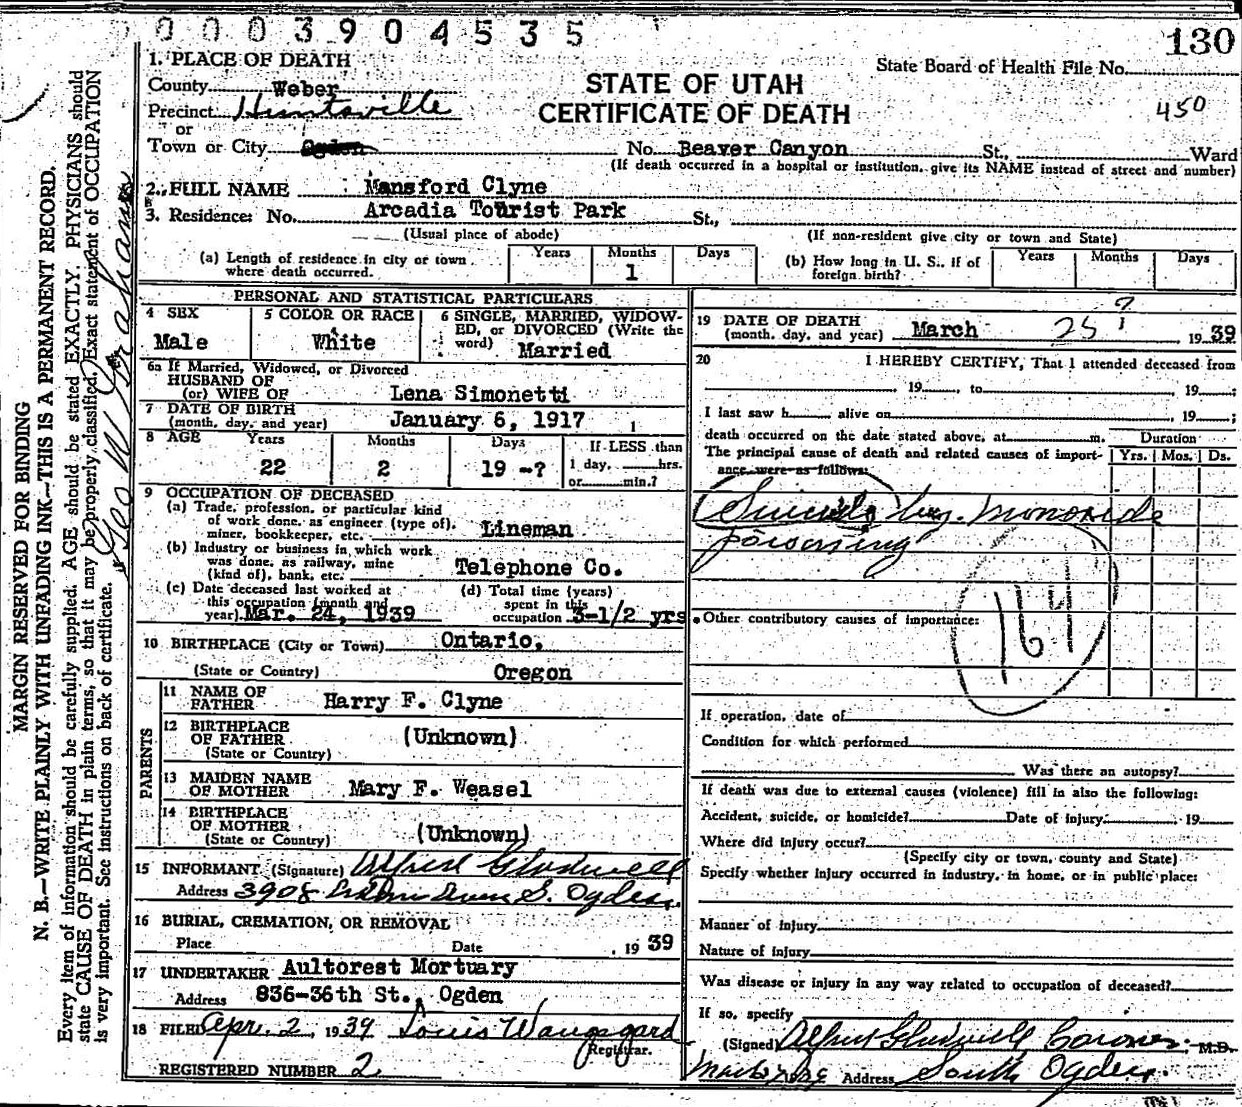 0 0 0 3 9 0 4 5 3 5
130
1. PLACE OF DEATH
State Board of Health File No.
County Weber
STATE OF UTAH
Precinct Huntsville
CERTIFICATE OF DEATH
450
or
Town or City Ogden No. Beaver Canyon St., Ward
(If death occurred in a hospital or institution, give its NAME instead of street and number)
2. FULL NAME Mansford Clyne
3. Residence: No. Arcadia Tourist Park St.,
(Usual place of abode) (If non-resident give city or town and State)
(a) Length of residence in city or town where death occurred. Years Months 1 Days
(b) How long in U. S., if of foreign birth? Years Months Days
PERSONAL AND STATISTICAL PARTICULARS
4 SEX Male
5 COLOR OR RACE White
6 SINGLE, MARRIED, WIDOW-
ED, or DIVORCED (Write the
word) Married
6a If Married, Widowed, or Divorced
HUSBAND OF
(or) WIFE OF Lena Simonetti
7 DATE OF BIRTH
(month, day, and year) January 6, 1917
8 AGE Years 22 Months 2 Days 19 -? If LESS than
1 day, hrs.
or min.?
9 OCCUPATION OF DECEASED
(a) Trade, profession, or particular kind
of work done, as engineer (type of),
miner, bookkeeper, etc. Lineman
(b) Industry or business in which work
was done, as railway, mine
(kind of), bank, etc. Telephone Co.
(c) Date deceased last worked at
this occupation (month and
year) Mar. 24, 1939
(d) Total time (years)
spent in this
occupation 3-1/2 yrs.
10 BIRTHPLACE (City or Town) Ontario,
(State or Country) Oregon
PARENTS
11 NAME OF
FATHER Harry F. Clyne
12 BIRTHPLACE
OF FATHER (Unknown)
(State or Country)
13 MAIDEN NAME
OF MOTHER Mary F. Weasel
14 BIRTHPLACE
OF MOTHER (Unknown)
(State or Country)
15 INFORMANT (Signature) Alfred Gladwell
Address 3908 S. Ogden
16 BURIAL, CREMATION, OR REMOVAL
Place Date , 19 39
17 UNDERTAKER Aultorest Mortuary
Address 836-36th St., Ogden
18 FILED Apr. 2, 1939 Louis
Registrar.
REGISTERED NUMBER 2
19 DATE OF DEATH
(month, day, and year) March 25 ? 19 39
20 I HEREBY CERTIFY, That I attended deceased from
19 , to 19 ;
I last saw h alive on 19 ;
death occurred on the date stated above, at m. Duration
The principal cause of death and related causes of import-
ance were as follows: Yrs. Mos. Ds.
Suicide by monoxide
poisoning
164
Other contributory causes of importance:
If operation, date of
Condition for which performed
Was there an autopsy?
If death was due to external causes (violence) fill in also the following:
Accident, suicide, or homicide? Date of injury 19
Where did injury occur?
(Specify city or town, county and State)
Specify whether injury occurred in industry, in home, or in public place:
Manner of injury
Nature of injury
Was disease or injury in any way related to occupation of deceased?
If so, specify
(Signed) Alfred Gladwell Coroner, M.D.
Address South Ogden.
MARGIN RESERVED FOR BINDING
N. B.—WRITE PLAINLY WITH UNFADING INK—THIS IS A PERMANENT RECORD.
Every item of information should be carefully supplied. AGE should be stated EXACTLY. PHYSICIANS should
state CAUSE OF DEATH in plain terms, so that it may be properly classified. Exact statement of OCCUPATION
is very important. See instructions on back of certificate.
Geo W Graham